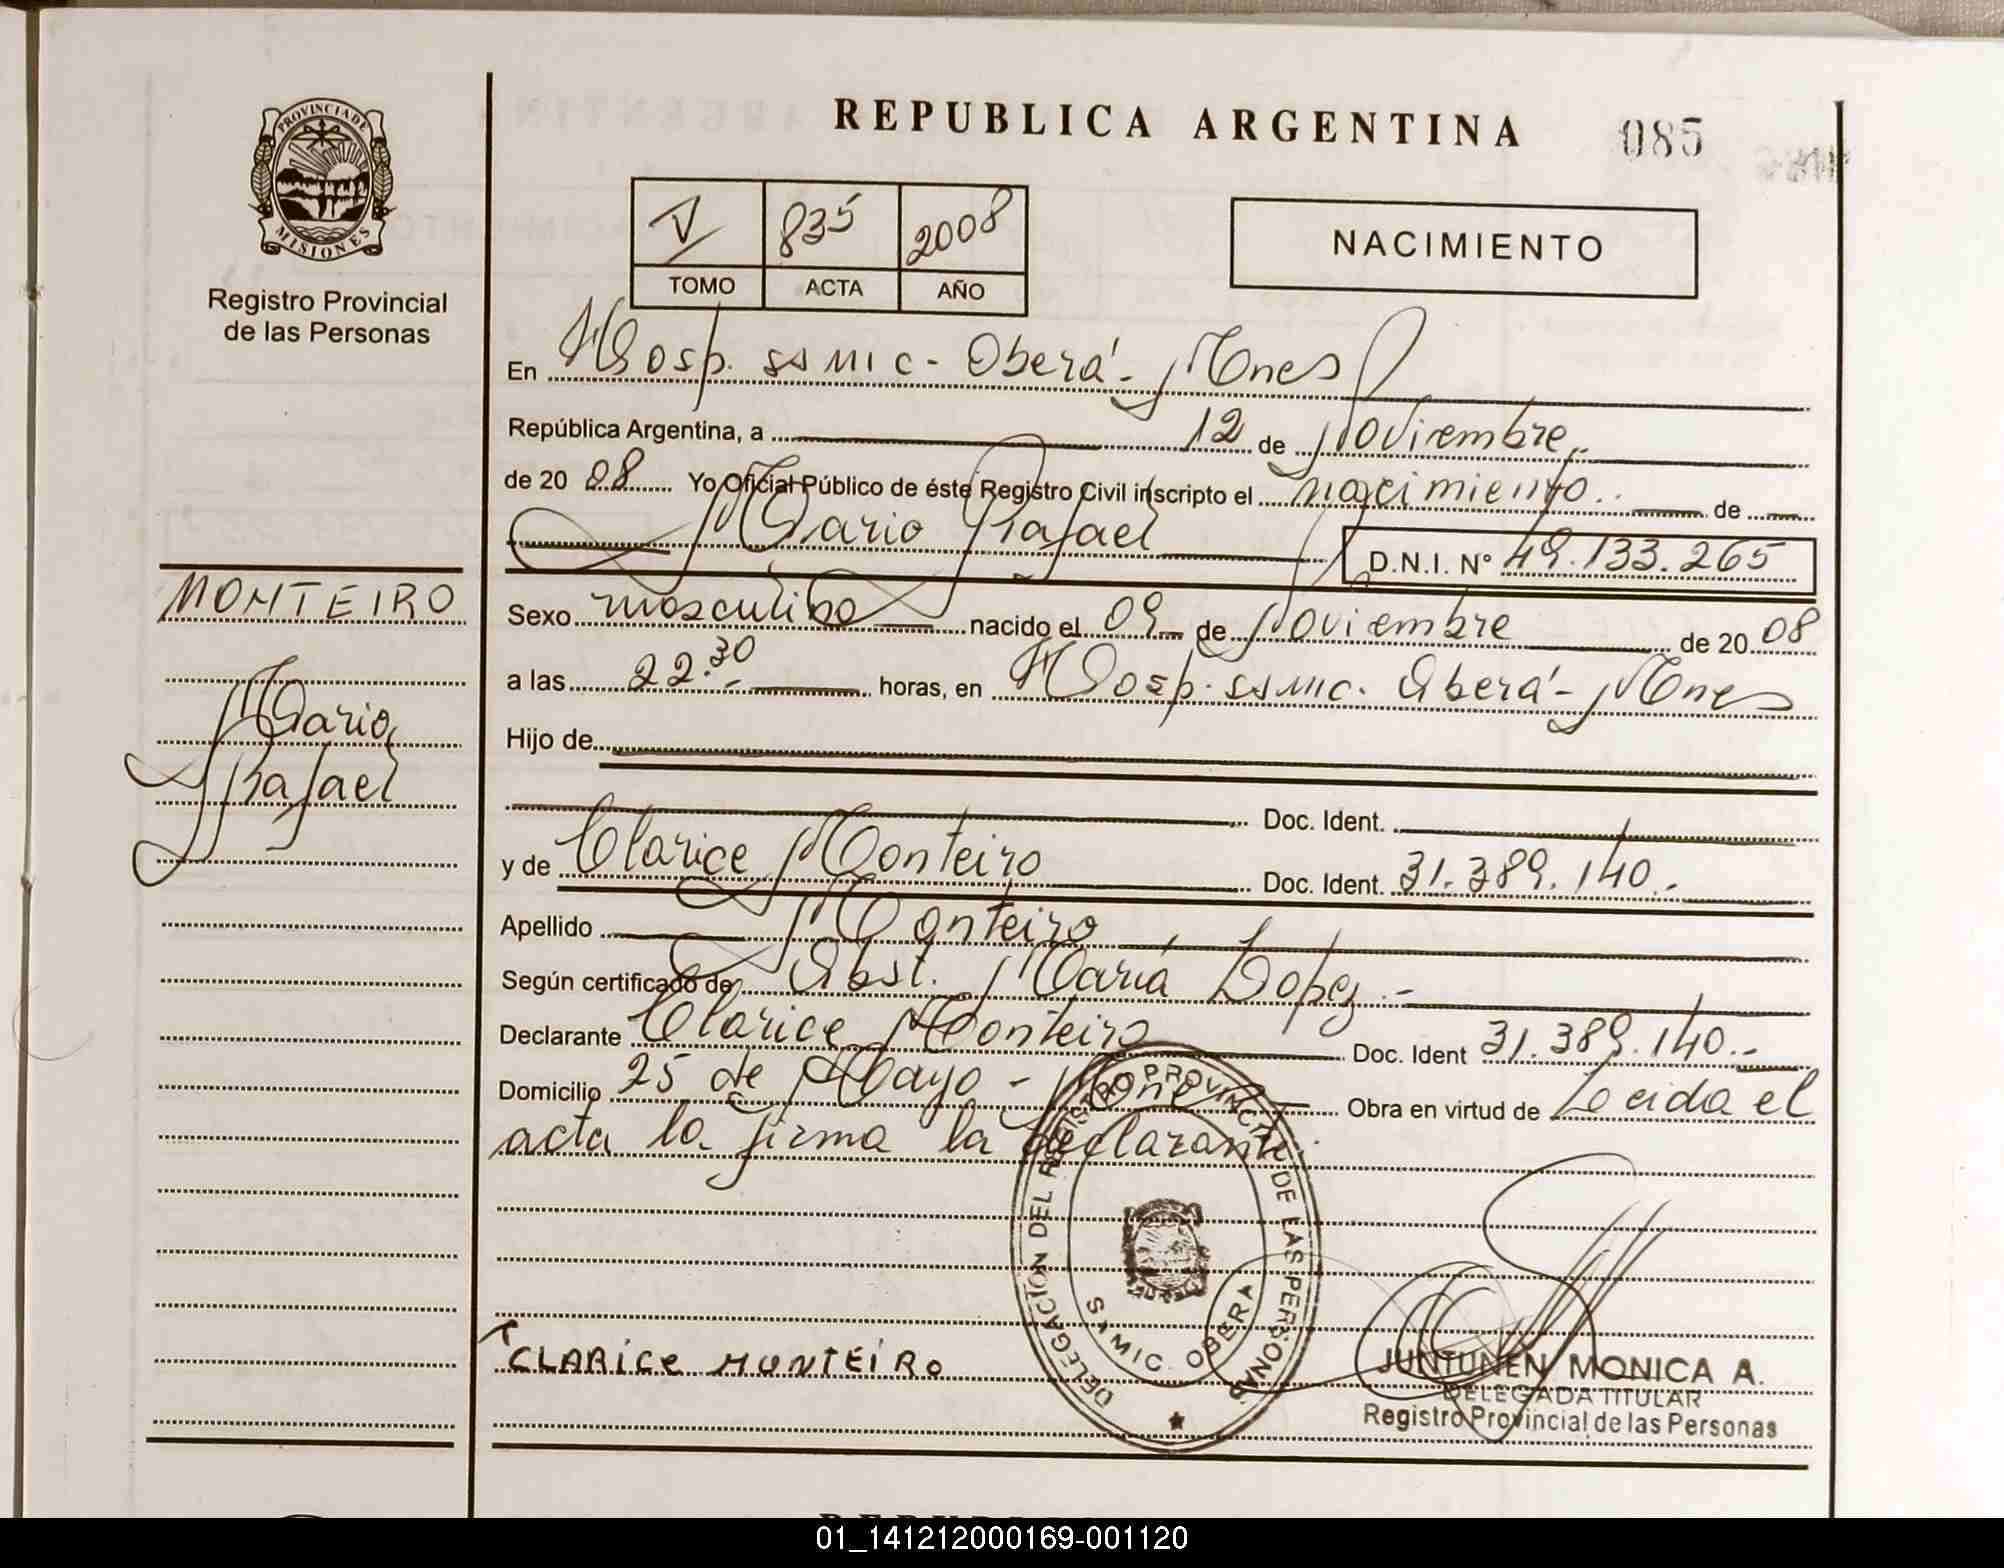 REPUBLICA ARGENTINA 085
PROVINCIA DE
MISIONES
Registro Provincial
de las Personas
V 835 2008
TOMO ACTA AÑO
NACIMIENTO
En Hosp. ssmic - Oberá - Mnes
República Argentina, a 12 de Noviembre
de 2008 Yo Oficial Público de éste Registro Civil inscripto el nacimiento de
Mario Rafael D.N.I. N° 49.133.265
MONTEIRO
Mario
Rafael
Sexo masculino nacido el 09 de Noviembre de 2008
a las 22.30 horas, en Hosp. ssmic. Oberá - Mnes
Hijo de
Doc. Ident.
y de Clarice Monteiro Doc. Ident. 31.389.140.-
Apellido Monteiro
Según certificado de Obst. María Lopez.-
Declarante Clarice Monteiro Doc. Ident 31.389.140.-
Domicilio 25 de Mayo - Mnes Obra en virtud de Leida el
acta la firma la declarante.
DELEGACIÓN DEL REGISTRO PROVINCIAL DE LAS PERSONAS
SSMIC. OBERA
CLARICE MONTEIRO
JUNTUNEN MONICA A.
DELEGADA TITULAR
Registro Provincial de las Personas
01_141212000169-001120